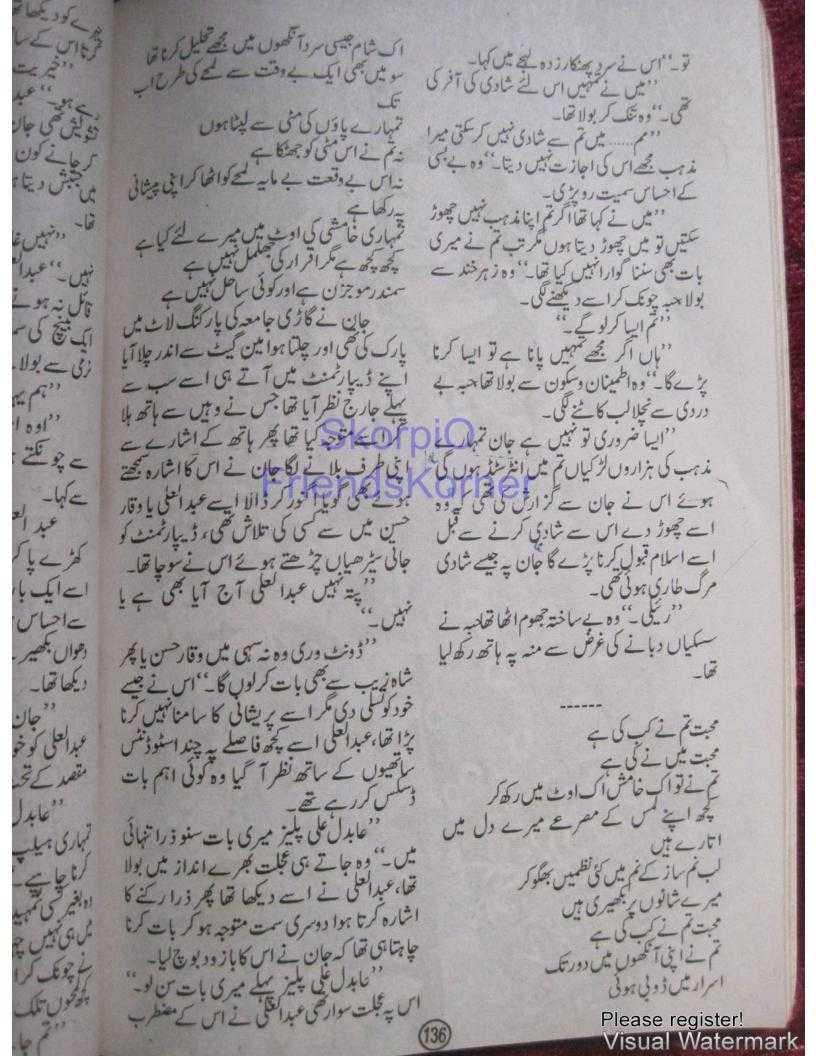 تو۔‘‘ اس نے سرد پھنکار زدہ لہجے میں کہا۔
’’میں نے تمہیں اس لئے شادی کی آفر کی
تھی۔‘‘ وہ تنک کر بولا تھا۔
’’مم..... میں تم سے شادی نہیں کر سکتی میرا
مذہب مجھے اس کی اجازت نہیں دیتا۔‘‘ وہ بے بسی
کے احساس سمیت رو پڑی۔
’’میں نے کہا تھا اگر تم اپنا مذہب نہیں چھوڑ
سکتیں تو میں چھوڑ دیتا ہوں مگر تب تم نے میری
بات بھی سننا گوارا نہیں کیا تھا۔‘‘ وہ زہر خند سے
بولا حبہ چونک کر اسے دیکھنے لگی۔
’’تم ایسا کر لو گے۔‘‘
’’ہاں اگر مجھے تمہیں پانا ہے تو ایسا کرنا
پڑے گا۔‘‘ وہ اطمینان و سکون سے بولا تھا حبہ بے
دردی سے نچلا لب کاٹنے لگی۔
’’ایسا ضروری تو نہیں ہے جان تمہارے
مذہب کی ہزاروں لڑکیاں تم میں انٹرسٹڈ ہوں گی
ہوئے اس نے جان سے گزارش کی تھی کہ وہ
اسے چھوڑ دے اس سے شادی کرنے سے قبل
اسے اسلام قبول کرنا پڑے گا جان پہ جیسے شادی
مرگ طاری ہوئی تھی۔
’’رئیلی۔‘‘ وہ بے ساختہ جھوم اٹھا تھا حبہ نے
سسکیاں دبانے کی غرض سے منہ پہ ہاتھ رکھ لیا
تھا۔
------
محبت تم نے کب کی ہے
محبت میں نے کی ہے
تم نے تو اک خامشی اک اوٹ میں رکھ کر
کچھ اپنے لمس کے مصرعے میرے دل میں
اتارے ہیں
لب نم ساز کے نم میں کئی نظمیں بھگو کر
میرے شانوں پر بکھیری ہیں
محبت تم نے کب کی ہے
تم نے اپنی آنکھوں میں دور تک
اسرار میں ڈوبی ہوئی
اک شام جیسی سرد آنکھوں میں مجھے تحلیل کرنا تھا
سو میں بھی ایک بے وقت سے لمحے کی طرح اب
تک
تمہارے پاؤں کی مٹی سے لپٹا ہوں
نہ تم نے اس مٹی کو جھٹکا ہے
نہ اس بے وقعت بے مایہ لمحے کو اٹھا کر اپنی پیشانی
پہ رکھا ہے
تمہاری خامشی کی اوٹ میں میرے لئے کیا ہے
کچھ کچھ ہے مگر اقرار کی جھلمل نہیں ہے
سمندر موجزن ہے اور کوئی ساحل نہیں ہے
جان نے گاڑی جامعہ کی پارکنگ لاٹ میں
پارک کی تھی اور چلتا ہوا مین گیٹ سے اندر چلا آیا
اپنے ڈیپارٹمنٹ میں آتے ہی اسے سب سے
پہلے جارج نظر آیا تھا جس نے وہیں سے ہاتھ ہلا
کر اسے متوجہ کیا تھا پھر ہاتھ کے اشارے سے
اپنی طرف بلانے لگا جان نے اس کا اشارہ سمجھتے
ہوئے بھی گویا اگنور کر ڈالا اسے عبدالعلی یا وقار
حسین میں سے کسی کی تلاش تھی، ڈیپارٹمنٹ کو
جاتی سیڑھیاں چڑھتے ہوئے اس نے سوچا تھا۔
’’پتہ نہیں عبدالعلی آج آیا بھی ہے یا
نہیں۔‘‘
’’ڈونٹ وری وہ نہ سہی میں وقار حسن یا پھر
شاہ زیب سے بھی بات کر لوں گا۔‘‘ اس نے جیسے
خود کو تسلی دی مگر اسے پریشانی کا سامنا نہیں کرنا
پڑا تھا، عبدالعلی اسے کچھ فاصلے پہ چند اسٹوڈنٹس
ساتھیوں کے ساتھ نظر آ گیا وہ کوئی اہم بات
ڈسکس کر رہے تھے۔
’’عابدل علی پلیز میری بات سنو ذرا تنہائی
میں۔‘‘ وہ جاتے ہی عجلت بھرے انداز میں بولا
تھا، عبدالعلی نے اسے دیکھا تھا پھر ذرا رکنے کا
اشارہ کرتا ہوا دوسری سمت متوجہ ہو کر بات کرنا
چاہتا ہی تھا کہ جان نے اس کا بازو دبوچ لیا۔
’’عابدل علی پلیز پہلے میری بات سن لو۔‘‘
اس پہ عجلت سوار تھی عبدالعلی نے اس کے مضطرب
136
SkorpiO
FriendsKorner
Please register!
Visual Watermark